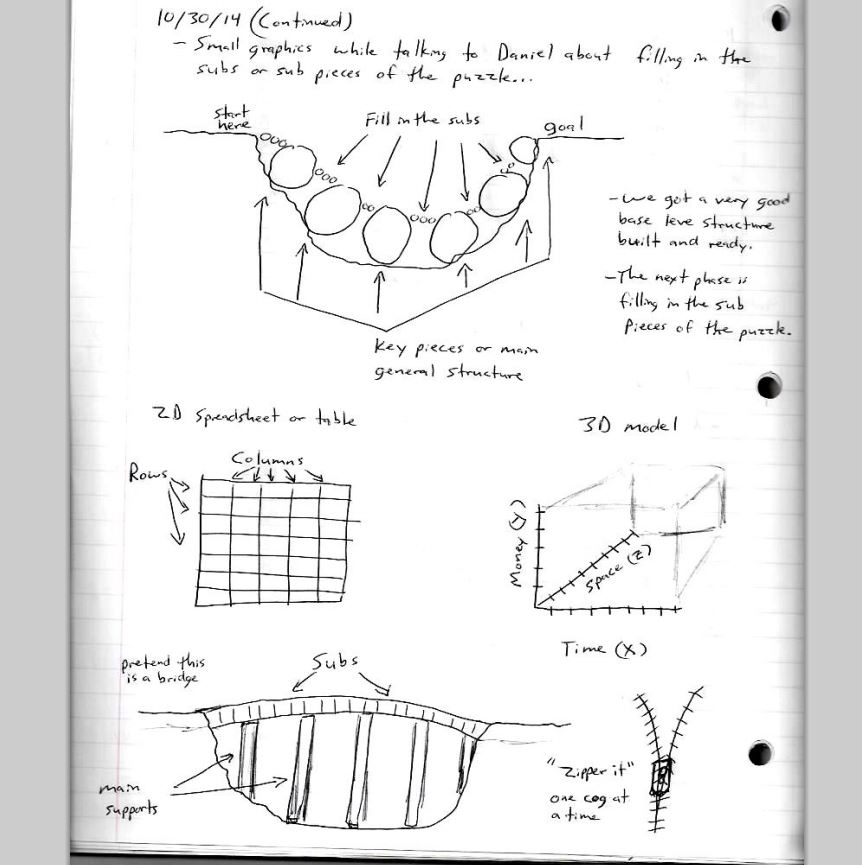 10/30/14 (Continued)
- Small graphics while talking to Daniel about filling in the
subs or sub pieces of the puzzle...
start
here
Fill in the subs
goal
- We got a very good
base leve structure
built and ready.
- The next phase is
filling in the sub
Pieces of the puzzle.
Key pieces or main
general structure
2D Spreadsheet or table
3D model
Columns
Rows
Money (Y)
Space (Z)
Time (X)
pretend this
is a bridge
Subs
main
supports
"Zipper it"
one cog at
a time